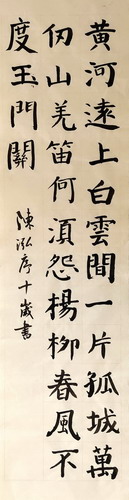 黃河遠上白雲間一片孤城萬
仞山羌笛何須怨楊柳春風不
度玉門關
陳泓序十歲書